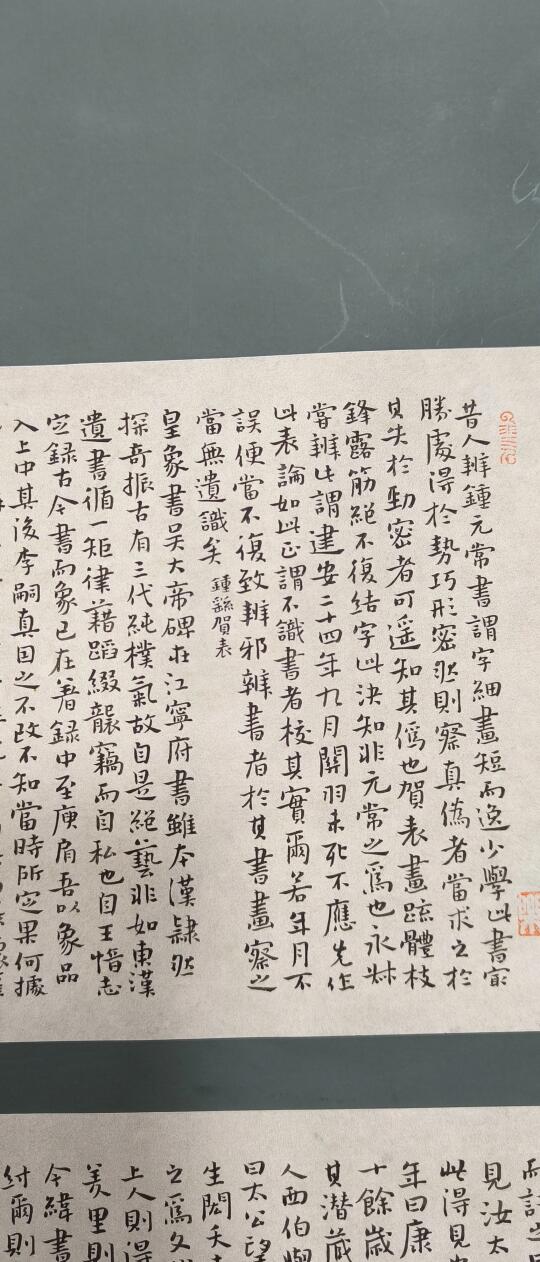 昔人辨鍾元常書謂字細畫短而逸少學此書家
勝處得於勢巧形密然則察真偽者當求之於
其失於勁密者可遥知其偽也賀表畫疏體枝
鋒露筋絕不復結字此決知非元常之為也永叔
嘗辨此謂建安二十四年九月關羽未死不應先作
此表論如此正謂不識書者校其實爾若年月不
誤便當不復致辨邪辨書者於其書畫察之
當無遺識矣 鍾繇賀表
皇象書吳大帝碑在江寧府書雖本漢隸然
探奇振古有三代純樸氣故自是絕藝非如東漢
遺書循一矩律藉蹈綴襲竊而自私也自王愔志
定錄古今書而象已在著録中至庾肩吾以象品
入上中其後李嗣真因之不改不知當時所定果何據
而
見汝太
此得見
年曰康
十餘歲
其潛藏
人西伯
曰太公望
生閎夭
之為文
上人則得
羑里則
今緯書
紂爾則